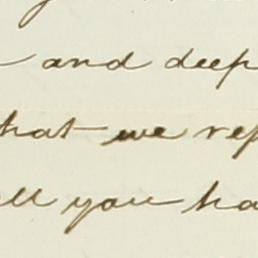 and deep
hat we rep
ll you ha